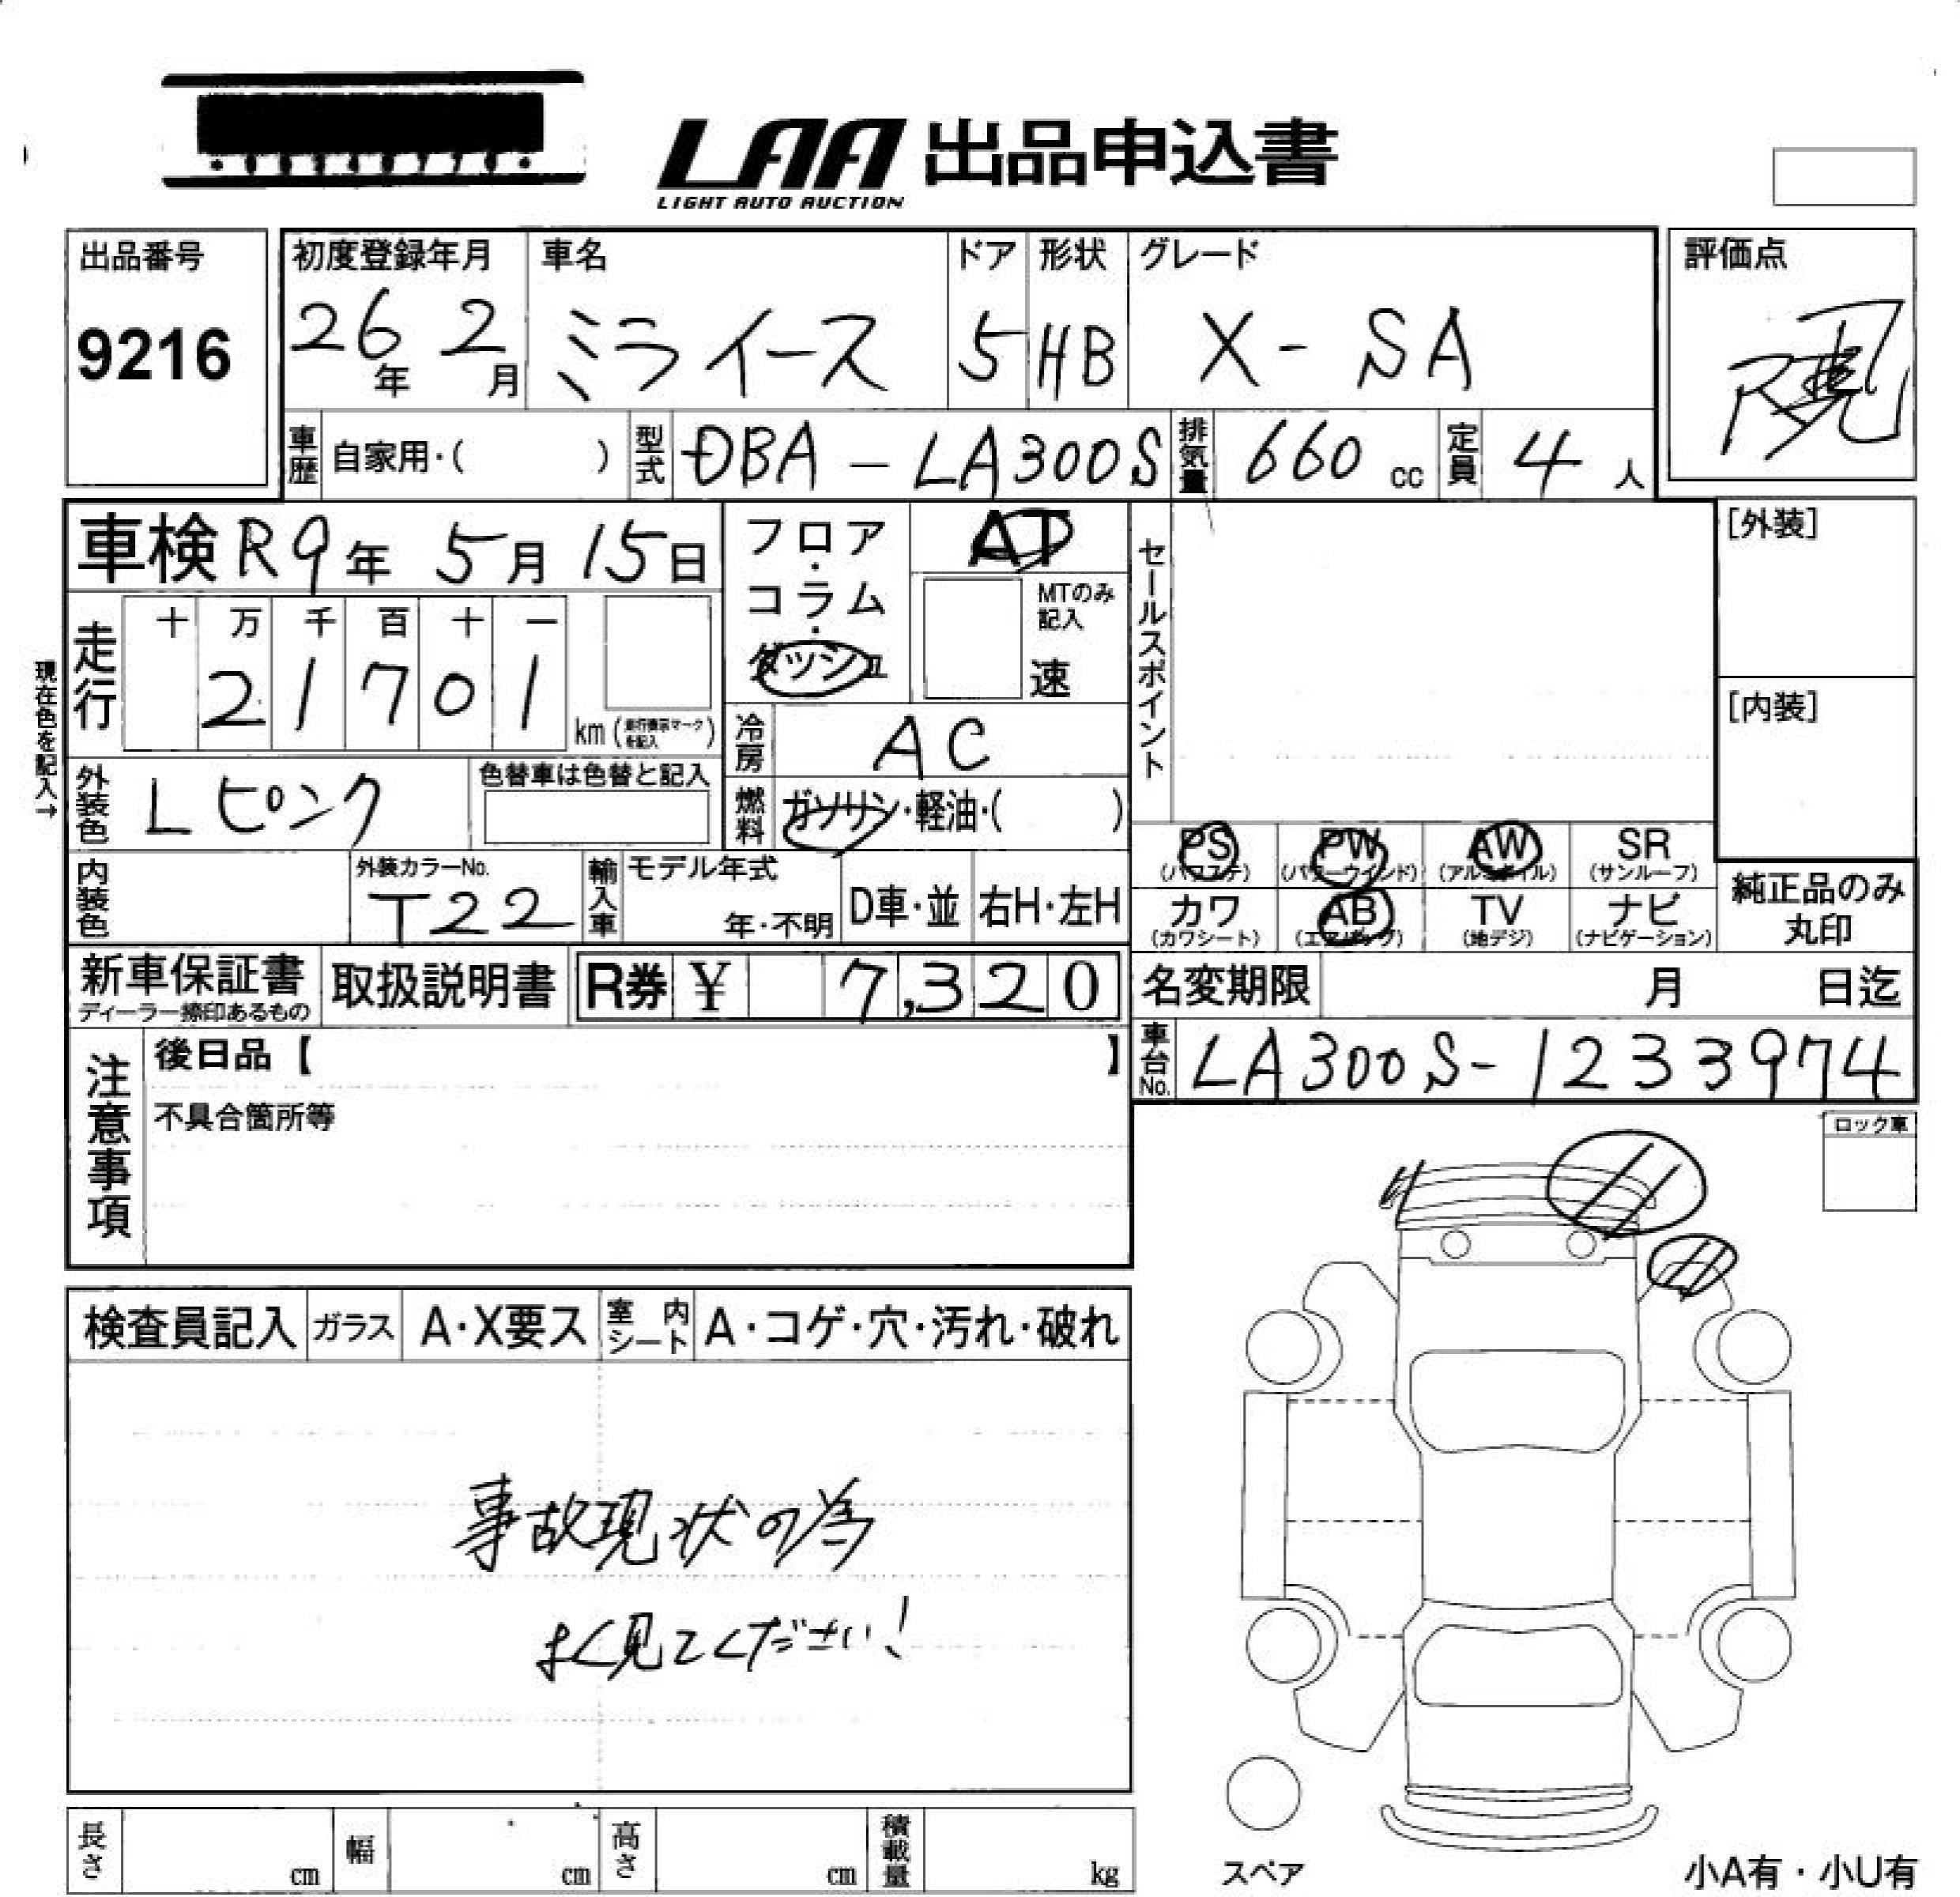 LAA 出品申込書
LIGHT AUTO AUCTION
出品番号
9216
初度登録年月 車名 ドア 形状 グレード
26年 2月 ミライース 5 HB X-SA
評価点
現
車歴 自家用・( ) 型式 DBA-LA300S 排気量 660 cc 定員 4 人
車検 R9年 5月 15日
フロア・コラム・ダッシュ
AT
MTのみ記入
速
セールスポイント
[外装]
[内装]
現在色を記入→
走行 十 万 千 百 十 一
2 1 7 0 1 km (走行表示マークを記入)
冷房 AC
外装色 Lピンク 色替車は色替と記入
燃料 ガソリン・軽油・( )
内装色 外装カラーNo. T22
輸入車 モデル年式 年・不明 D車・並 右H・左H
PS (パワステ) PW (パワーウインド) AW (アルミホイル) SR (サンルーフ)
カワ (カワシート) AB (エアバッグ) TV (地デジ) ナビ (ナビゲーション)
純正品のみ丸印
新車保証書
ディーラー捺印あるもの
取扱説明書 R券 ¥ 7,320
名変期限 月 日迄
車台No. LA300S-1233974
注意事項
後日品【 】
不具合箇所等
ロック車
検査員記入 ガラス A・X要ス 室内シート A・コゲ・穴・汚れ・破れ
事故現状の為
よく見てください!
長さ cm 幅 cm 高さ cm 積載量 kg
スペア
小A有・小U有